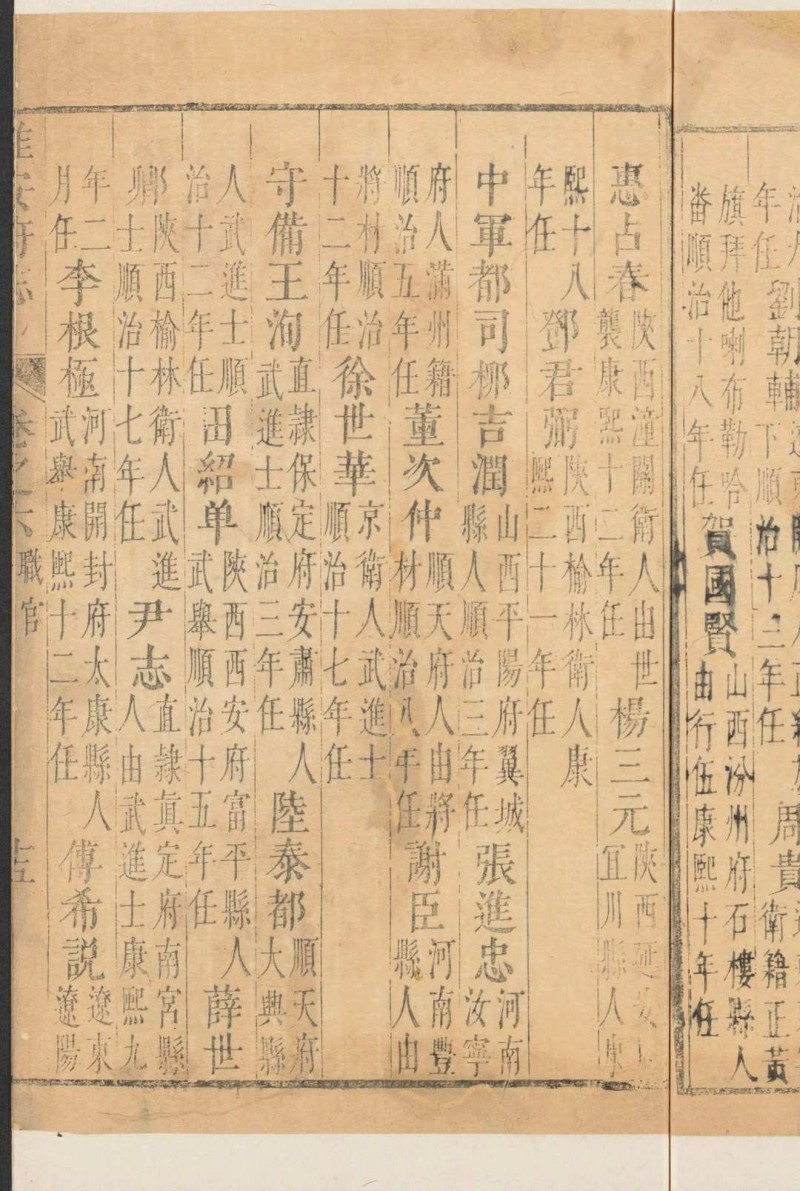 年任劉朝輔下順治十三年任周貴衛籍正黃
旗拜他喇布勒哈番順治十八年任賀國賢山西汾州府石樓縣人由行伍康熙十年任
惠占春陝西潼關衛人由世襲康熙十二年任楊三元陝西延安府宜川縣人康
熙十八年任鄧君弼陝西榆林衛人康熙二十一年任
中軍都司栁吉潤山西平陽府翼城縣人順治三年任張進忠河南汝寧
府人滿州籍順治五年任董次仲順天府人由將材順治八年任謝臣河南豐縣人由
將材順治十二年任徐世華京衛人武進士順治十七年任
守備王洵直隷保定府安肅縣人武進士順治三年任陸泰都順天府大興縣
人武進士順治十二年任田紹单陝西西安府富平縣人武舉順治十五年任薛世
卿陝西榆林衛人武進士順治十七年任尹志直隷真定府南宮縣人由武進士康熙九
年二月任李根極河南開封府太康縣人武舉康熙十二年任傅希説遼東遼陽
淮安府志 卷之六 職官